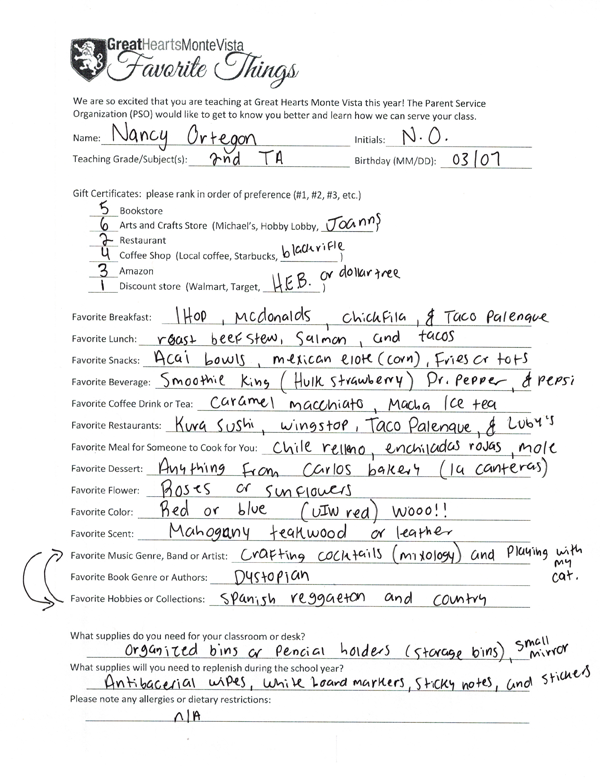 GreatHeartsMonteVista
Favorite Things
We are so excited that you are teaching at Great Hearts Monte Vista this year! The Parent Service
Organization (PSO) would like to get to know you better and learn how we can serve your class.
Name: Nancy Ortegon Initials: N.O.
Teaching Grade/Subject(s): 2nd TA Birthday (MM/DD): 03/07
Gift Certificates: please rank in order of preference (#1, #2, #3, etc.)
5 Bookstore
6 Arts and Crafts Store (Michael's, Hobby Lobby, Joanns
2 Restaurant
4 Coffee Shop (Local coffee, Starbucks, blackrifle )
3 Amazon
1 Discount store (Walmart, Target, H.E.B. or dollartree )
Favorite Breakfast: IHOP, McDonalds, Chickfila, & Taco Palenque
Favorite Lunch: roast beef stew, Salmon, and tacos
Favorite Snacks: Acai bowls, mexican elote (corn), Fries or tots
Favorite Beverage: Smoothie King (Hulk strawberry) Dr. Pepper, & pepsi
Favorite Coffee Drink or Tea: Caramel macchiato, Macha Ice tea
Favorite Restaurants: Kura Sushi, wingstop, Taco Palenque, & Luby's
Favorite Meal for Someone to Cook for You: Chile relleno, enchiladas rojas, mole
Favorite Dessert: Anything From Carlos bakery (la canteras)
Favorite Flower: Roses or sunflowers
Favorite Color: Red or blue (UIW red) wooo!!
Favorite Scent: Mahogany teakwood or leather
Favorite Music Genre, Band or Artist: Crafting cocktails (mixology) and Playing with my cat.
Favorite Book Genre or Authors: Dystopian
Favorite Hobbies or Collections: Spanish reggaeton and country
What supplies do you need for your classroom or desk?
Organized bins or Pencial holders (storage bins), small mirror
What supplies will you need to replenish during the school year?
Antibacerial wipes, white board markers, sticky notes, and stickers
Please note any allergies or dietary restrictions:
n/A